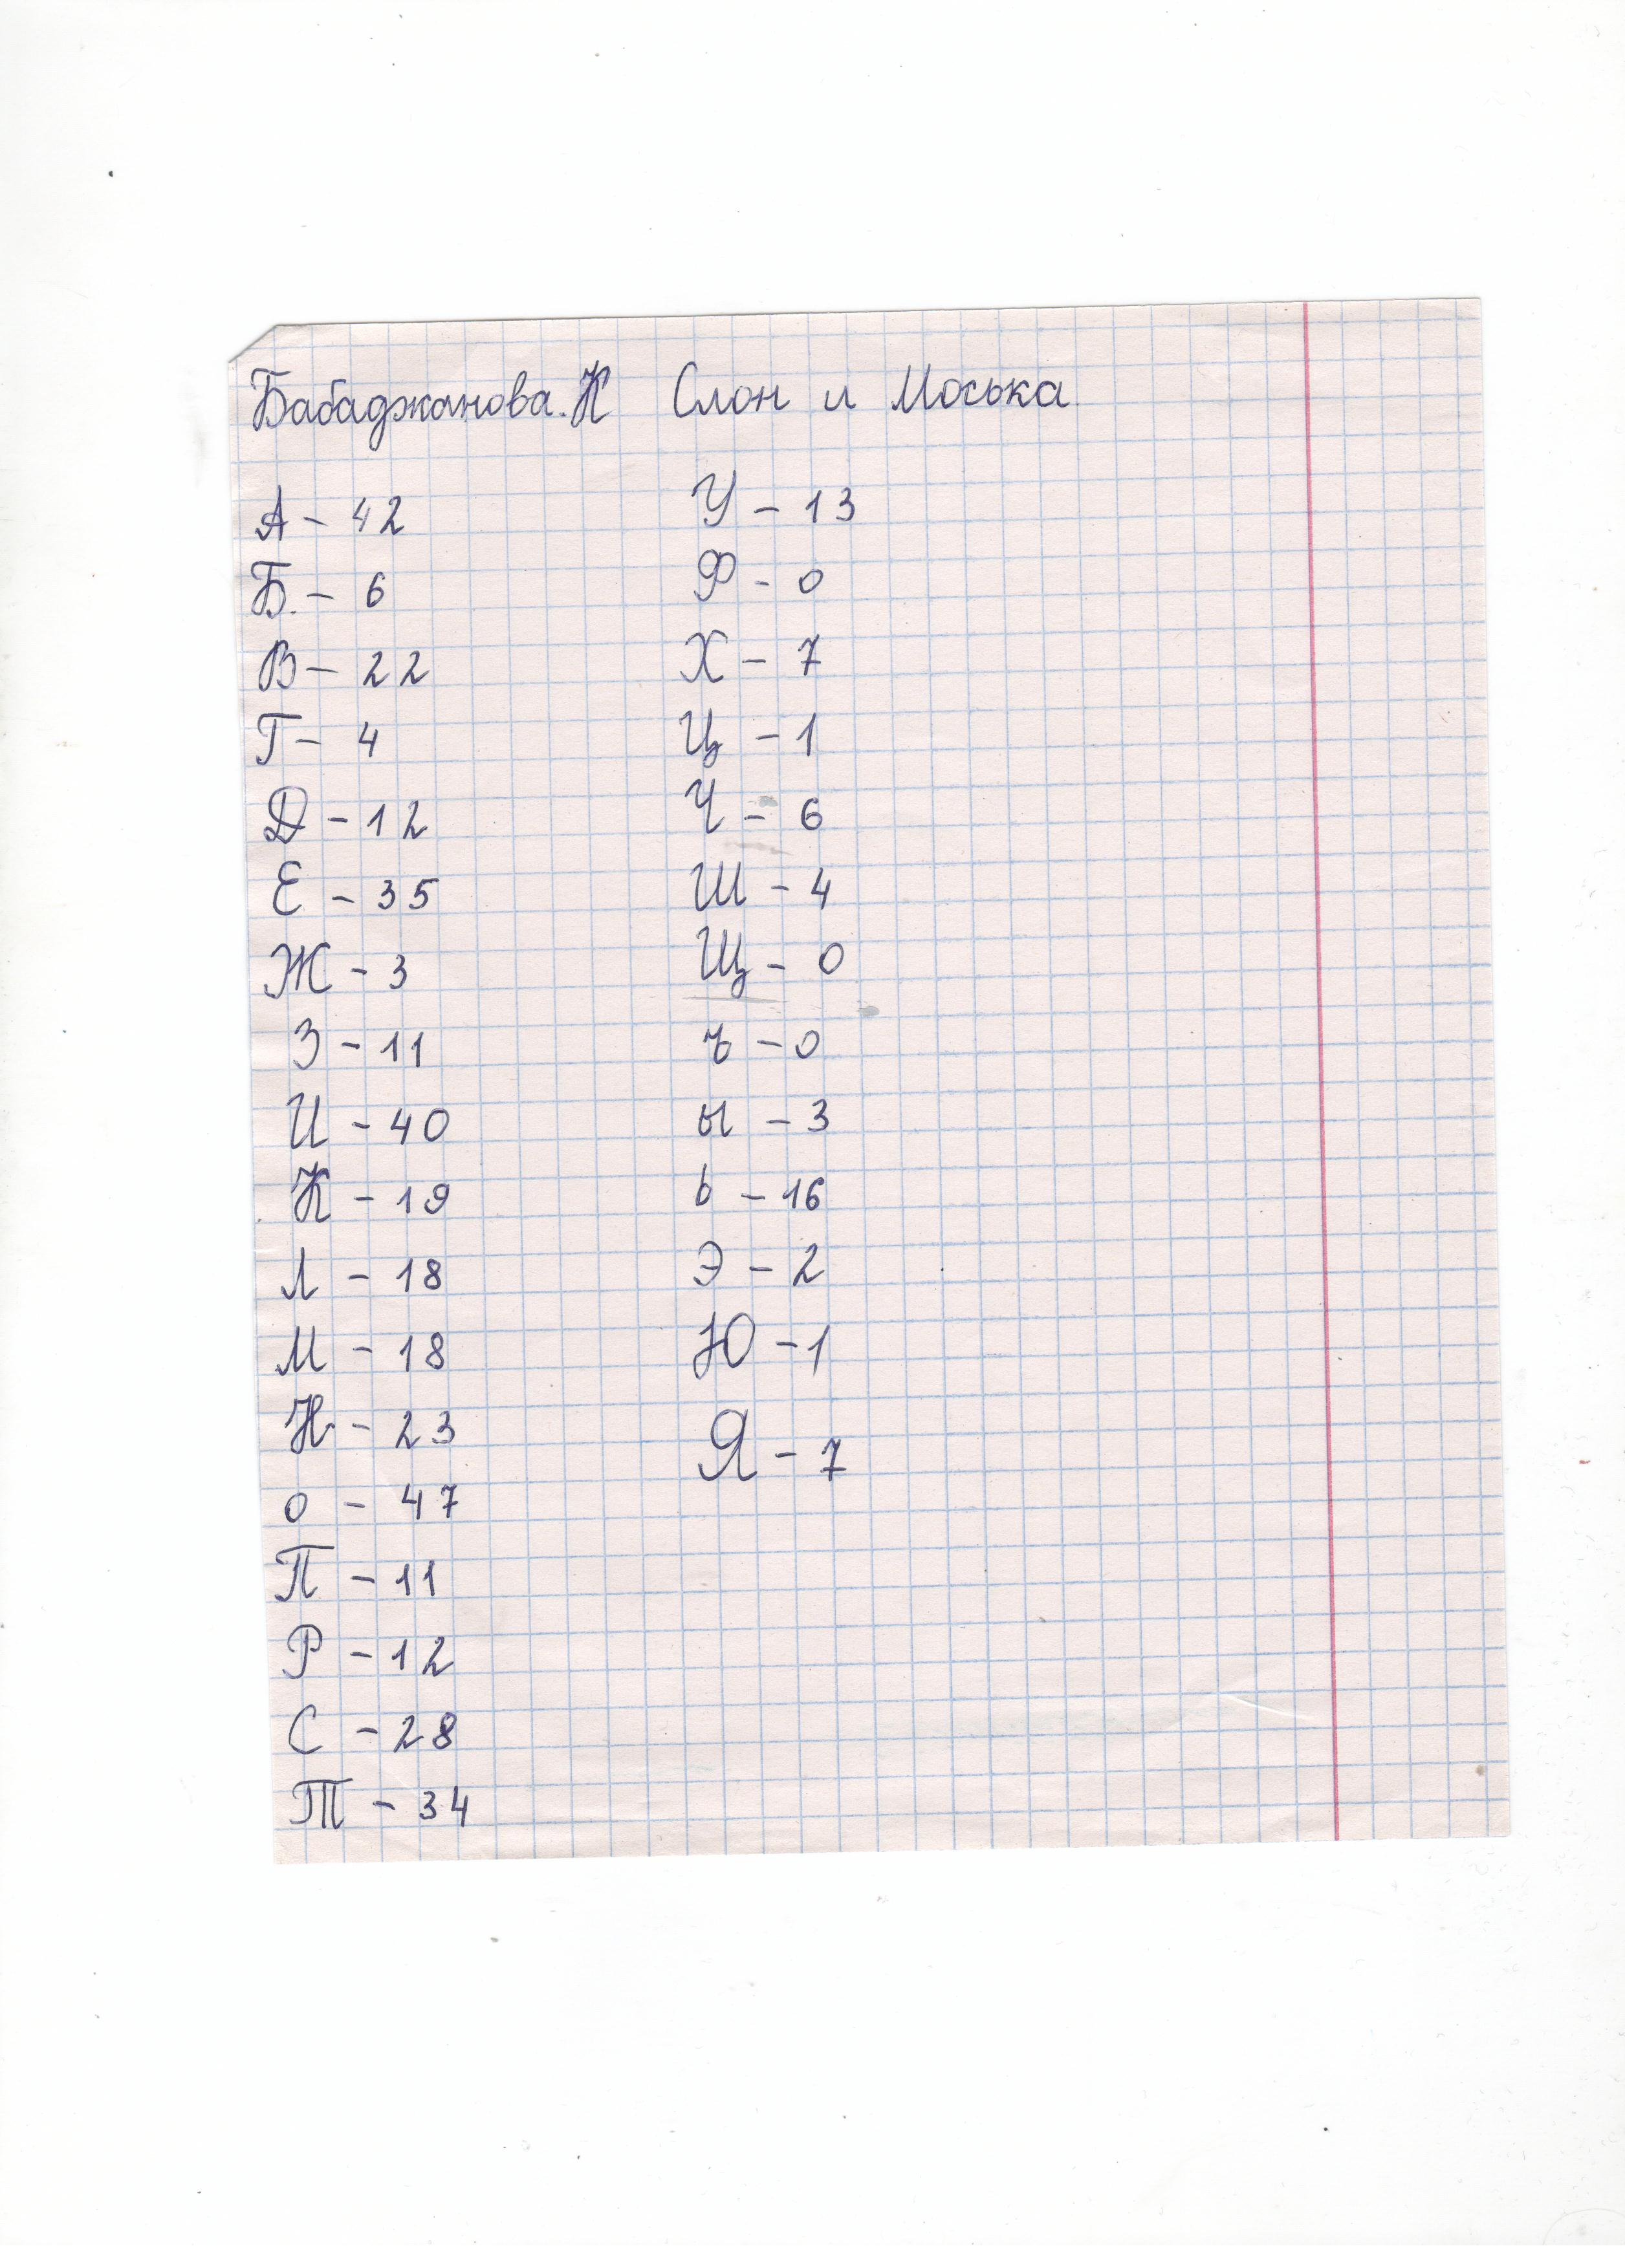 Бабаджанова.К Слон и Моська
А - 42
Б. - 6
В - 22
Г - 4
Д - 12
Е - 35
Ж - 3
З - 11
И - 40
К - 19
Л - 18
М - 18
Н - 23
о - 47
П - 11
Р - 12
С - 28
Т - 34
У - 13
Ф - 0
Х - 7
Ц - 1
Ч - 6
Ш - 4
Щ - 0
ъ - 0
ы - 3
ь - 16
Э - 2
Ю - 1
Я - 7